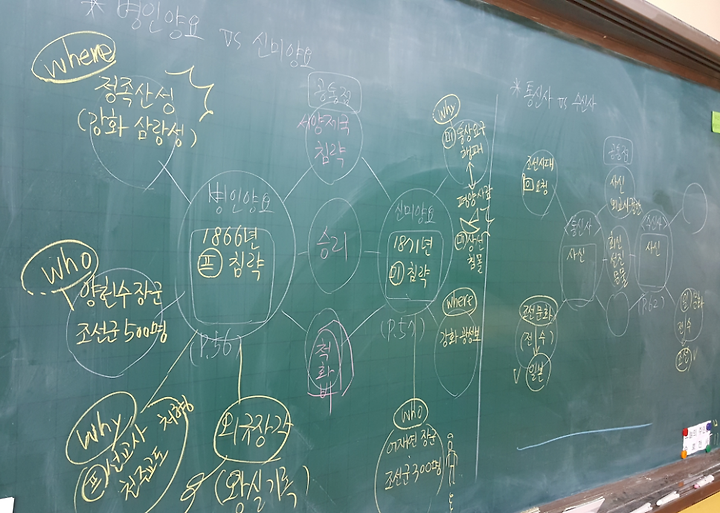 * 병인양요 vs 신미양요
where
정족산성
(강화 삼랑성)
공통점
서양제국
침략
병인양요
1866년
프 침략
(P.56)
승리
척화비
who
양헌수 장군
조선군 500명
why
프 선교사 처형
천주교도
외규장각
(왕실 기록)
신미양요
1871년
미 침략
(P.57)
why
미 통상요구
행패
평양사람
미 상선
침몰
where
강화 광성보
who
어재연 장군
조선군 300명
* 통신사 vs 수신사
조선시대
요청
공통점
사신
외교사절단
통신사
사신
수신사
사신
(P.62)
조선문화
(전수)
일본
문화
전수
조선